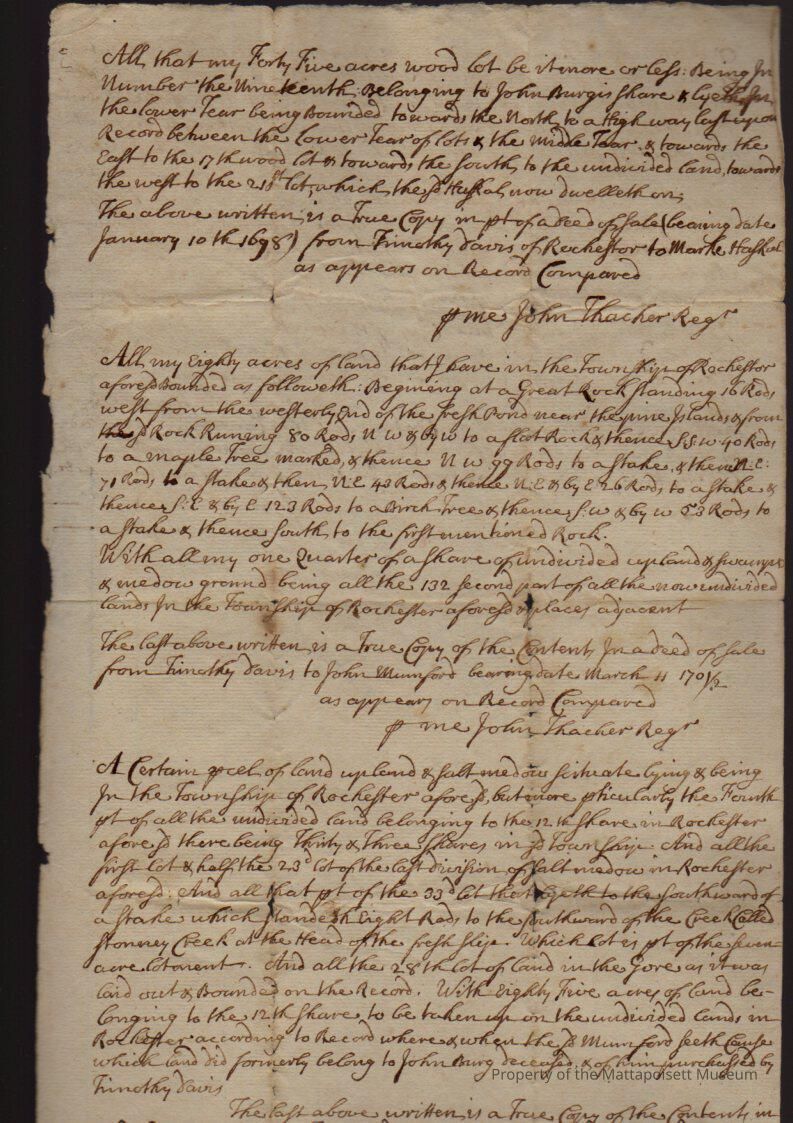 All that my Forty Five acres wood lot be it more or less: Being In
Number the Nineteenth Belonging to John Burgis share & lyeth In
the lower Tear being Bounded towards the North to a High way last upon
Record between the Lower Tear of lots & the Middle Tear & towards the
East to the 17th wood lot & towards the South to the undivided land, towards
the west to the 21st lot, which the sd Haskal now dwelleth on,
The above written is a True Copy in pt of a deed of sale (bearing date
January 10th 1698) from Timothy Davis of Rochester to Marke Haskel
as appears on Record Compared
p me John Thacher Regr
All my Eighty acres of land that I have in the Township of Rochester
aforesd Bounded as followeth: Begining at a Great Rock standing 16 Rods
west from the westerly End of the fresh Pond near the pine Islands & from
the sd Rock Runing 80 Rods N W & by W to a flat Rock & thence S.S.W 40 Rods
to a maple Tree marked, & thence N W 99 Rods to a stake, & thence N.E:
71 Rods to a stake & then N E 43 Rods & thence N:E & by E 26 Rods to a stake &
thence S:E & by E 123 Rods to a Birch Tree & thence S:W & by W 53 Rods to
a stake & thence South to the first mentioned Rock.
With all my one Quarter of a share of undivided upland & swamps
& medow ground being all the 132 second part of all the now undivided
lands In the Township of Rochester aforesd & places adjacent
The last above written is a True Copy of the Contents In a deed of sale
from Timothy Davis to John Mumford bearing date March 11 1701/2
as appears on Record Compared
p me John Thacher Regr
A Certain pcel of land upland & salt medow scituate lying & being
In the Township of Rochester aforesd, but more pticularly the Fourth
pt of all the undivided land belonging to the 12th share in Rochester
aforesd there being Thirty & Three shares in sd Township. And all the
first lot & half the 23d lot of the last division of salt medow in Rochester
aforesd: And all that pt of the 33d lot that lyeth to the Southward of
a stake which standeth Eight Rods to the southward of the Creek Called
Stonney Creek at the Head of the fresh slip. Which Lot is pt of the seven
acre lotment. And all the 28th lot of land in the Gore as it was
laid out & Bounded on the Record. With Eighty Five acres of land be-
longing to the 12th share, to be taken up on the undivided lands in
Rochester according to Record where & when the sd Mumford seeth Cause
which land did formerly belong to John Burg deceased, & of him purchased by
Timothy Davis
The last above written is a True Copy of the Contents in
Property of the Mattapoisett Museum